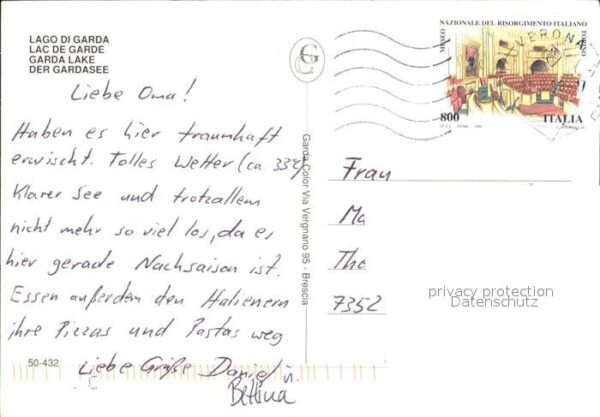 LAGO DI GARDA
LAC DE GARDE
GARDA LAKE
DER GARDASEE
Liebe Oma!
Haben es hier traumhaft
erwischt. Tolles Wetter (ca 33°)
Klarer See und trotzallem
nicht mehr so viel los, da es
hier gerade Nachsaison ist.
Essen außerdem den Italienern
ihre Pizzas und Pastas weg
Liebe Grüße Daniel u.
Bettina
50-432
GC
Garda Color Via Vergnano 95 - Brescia
MUSEO NAZIONALE DEL RISORGIMENTO ITALIANO TORINO
800 ITALIA
VERONA
Frau
Ma
Tho
7352
privacy protection
Datenschutz